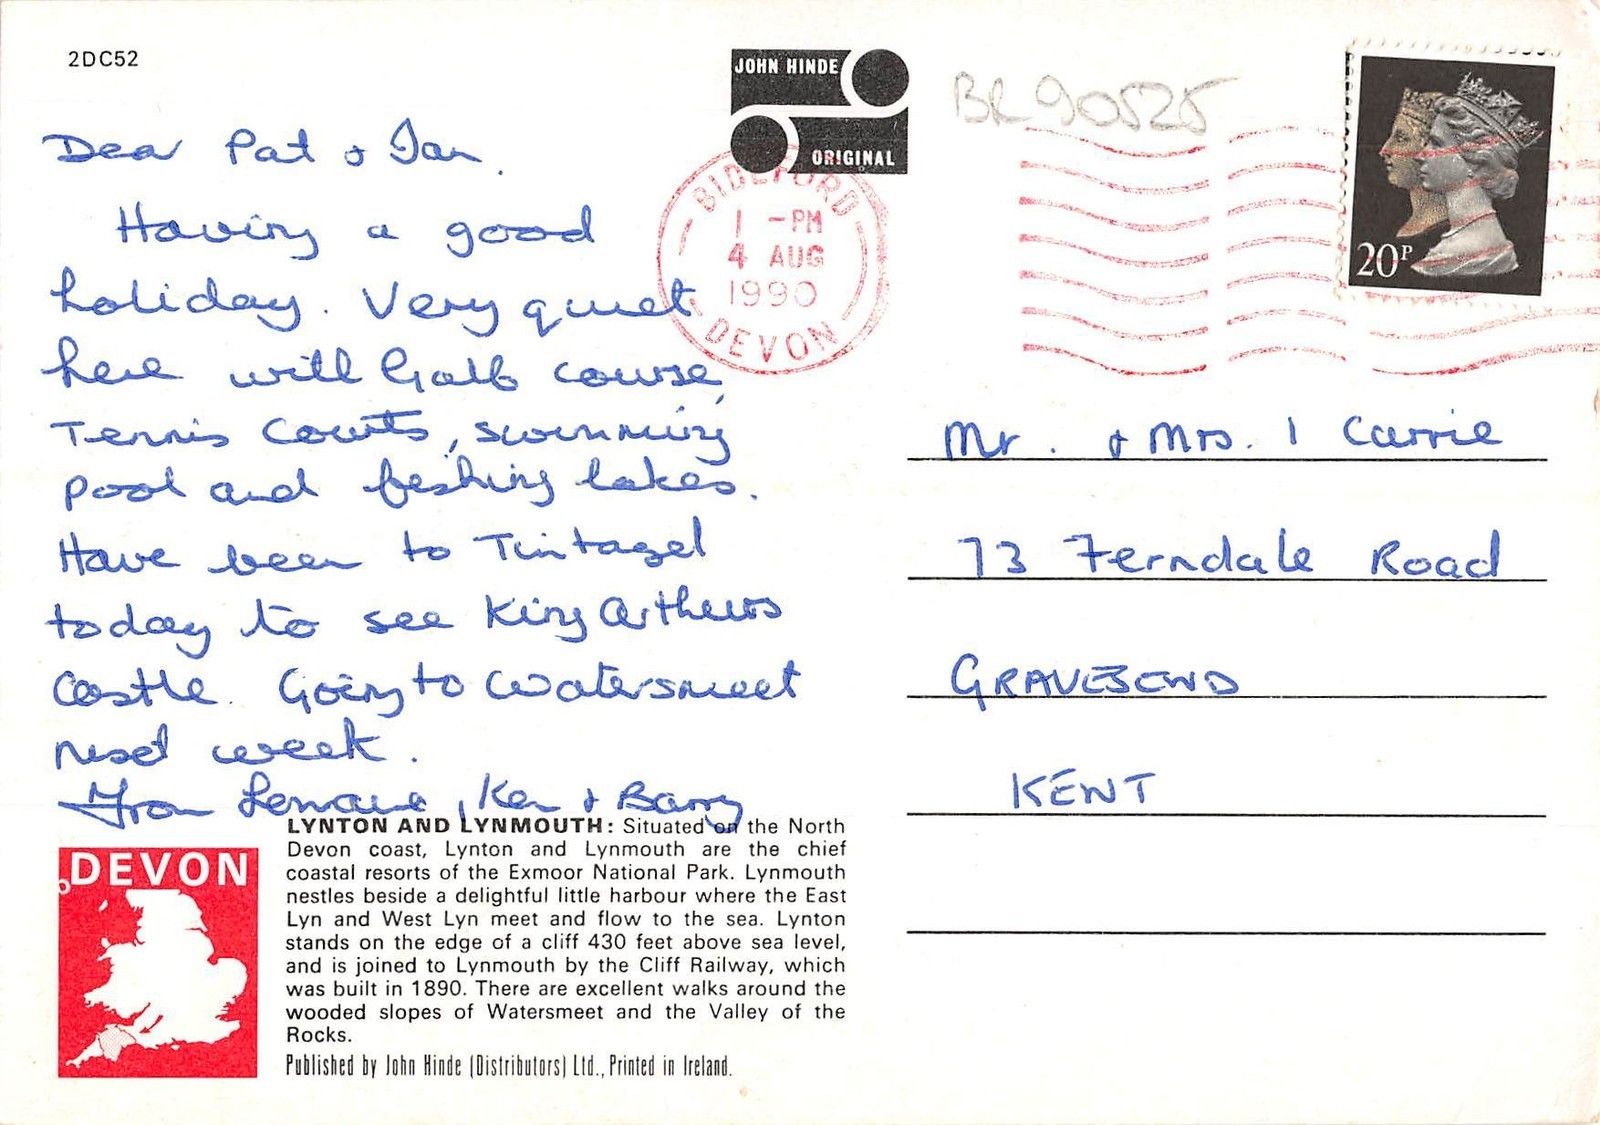 2DC52
JOHN HINDE
ORIGINAL
BR90525
BIDEFORD
1 - PM
4 AUG
1990
DEVON
20P
Dear Pat + Ian.
Having a good
holiday. Very quiet
here with Golf course,
Tennis Courts, swimming
pool and fishing lakes.
Have been to Tintagel
today to see King Arthurs
Castle. Going to Watersmeet
next week.
From Lorraine, Ken + Barry
Mr. + Mrs. I Carrie
73 Ferndale Road
GRAVESEND
KENT
LYNTON AND LYNMOUTH: Situated on the North
Devon coast, Lynton and Lynmouth are the chief
coastal resorts of the Exmoor National Park. Lynmouth
nestles beside a delightful little harbour where the East
Lyn and West Lyn meet and flow to the sea. Lynton
stands on the edge of a cliff 430 feet above sea level,
and is joined to Lynmouth by the Cliff Railway, which
was built in 1890. There are excellent walks around the
wooded slopes of Watersmeet and the Valley of the
Rocks.
Published by John Hinde (Distributors) Ltd., Printed in Ireland.
DEVON